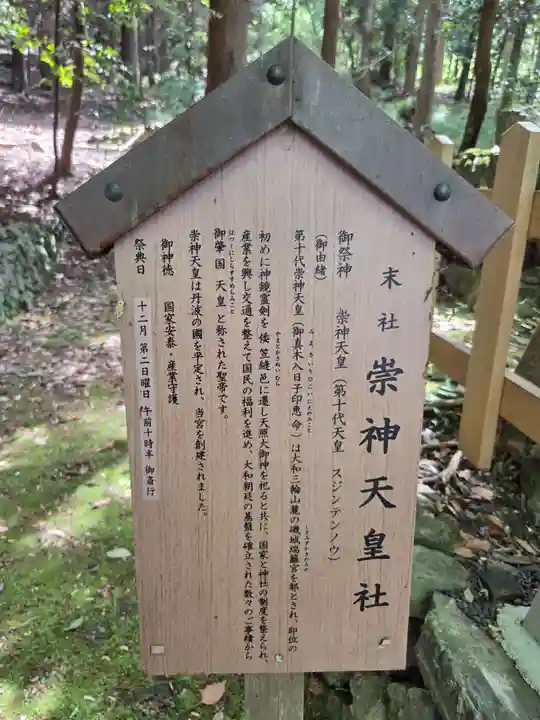 末社 崇神天皇社
御祭神 崇神天皇(第十代天皇 スジンテンノウ)
(御由緒)
第十代崇神天皇(御真木入日子印恵命)は大和三輪山麓の磯城瑞籬宮を都とされ、即位の
初めに神鏡霊剣を倭笠縫邑に遷し天照大御神を祀ると共に、国家と神社の制度を整えられ、
産業を興し交通を整えて国民の福利を進め、大和朝廷の基盤を確立された数々のご事績から
御肇国天皇と称された聖帝です。
崇神天皇は丹波の國を平定され、当宮を創建されました。
御神徳 国家安泰・産業守護
祭典日 十二月 第二日曜日 午前十時半 御斎行